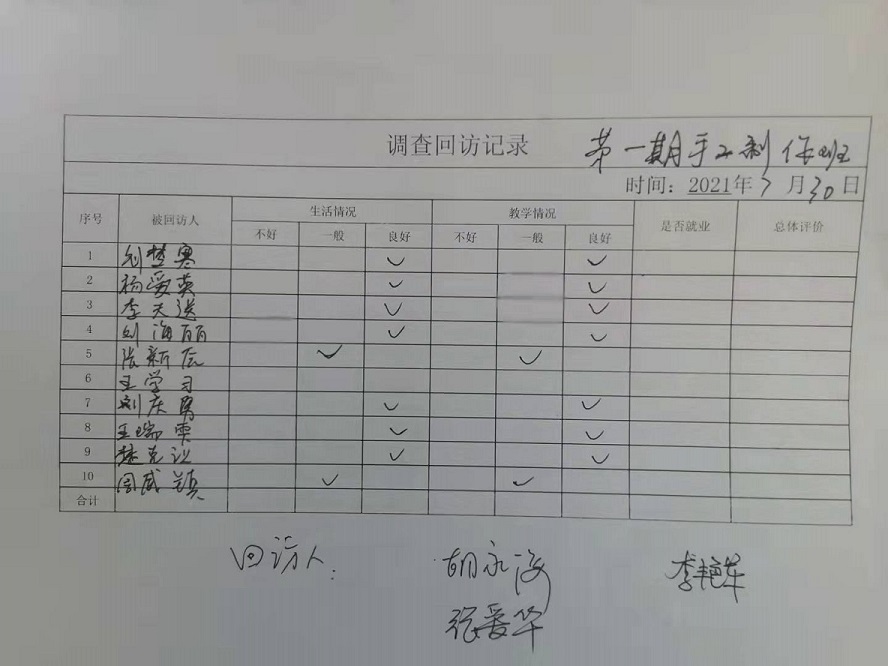 调查回访记录 第一期手工制作班
时间：2021年7月30日
序号 被回访人 生活情况 教学情况 是否就业 总体评价
不好 一般 良好 不好 一般 良好
1 刘梦寒 ✓ ✓
2 杨爱英 ✓ ✓
3 李天送 ✓ ✓
4 刘海丽 ✓ ✓
5 张新辰 ✓ ✓
6 王学习
7 刘庆勇 ✓ ✓
8 王瑞雪 ✓ ✓
9 克 ✓ ✓
10 周威 ✓ ✓
合计
回访人： 胡永海 李艳军
张爱华